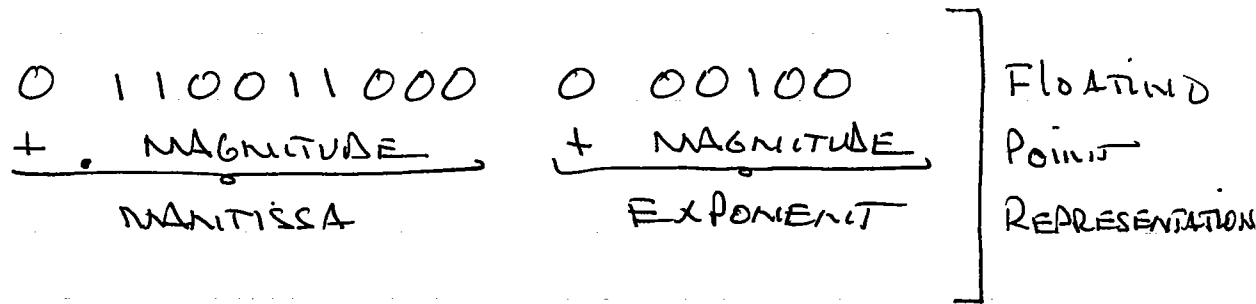 0 110011000 0 00100
+ . MAGNITUDE + MAGNITUDE
MANTISSA EXPONENT
FLOATING
POINT
REPRESENTATION